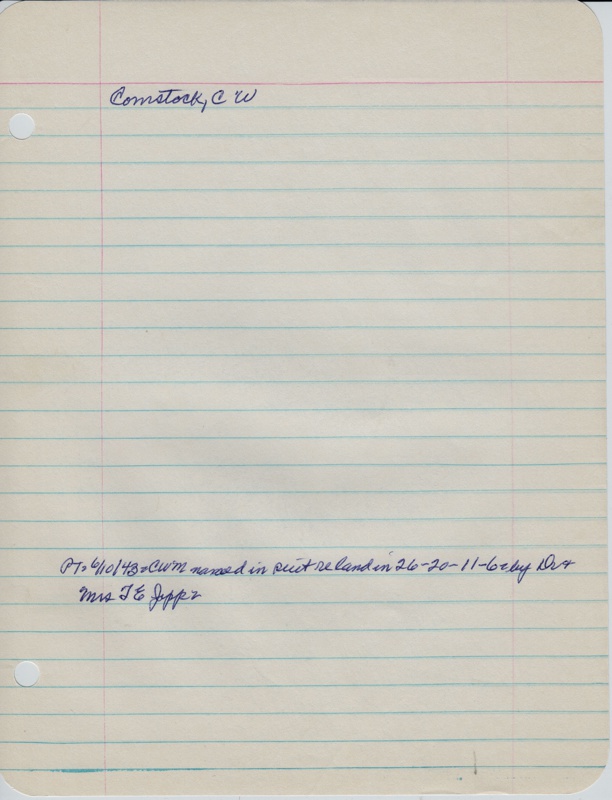 Comstock, C W
PT- 6/10/43- CWM named in suit re land in 26-20-11-6- by Dr &
Mrs T E Jepp-